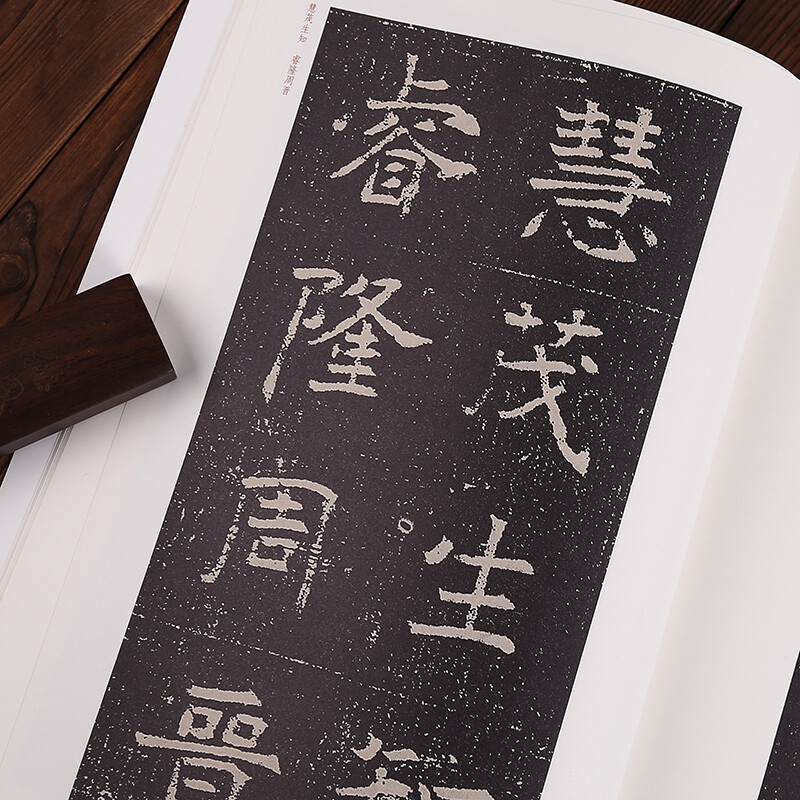 慧茂生知 睿隆周晋
慧茂生知
睿隆周晋